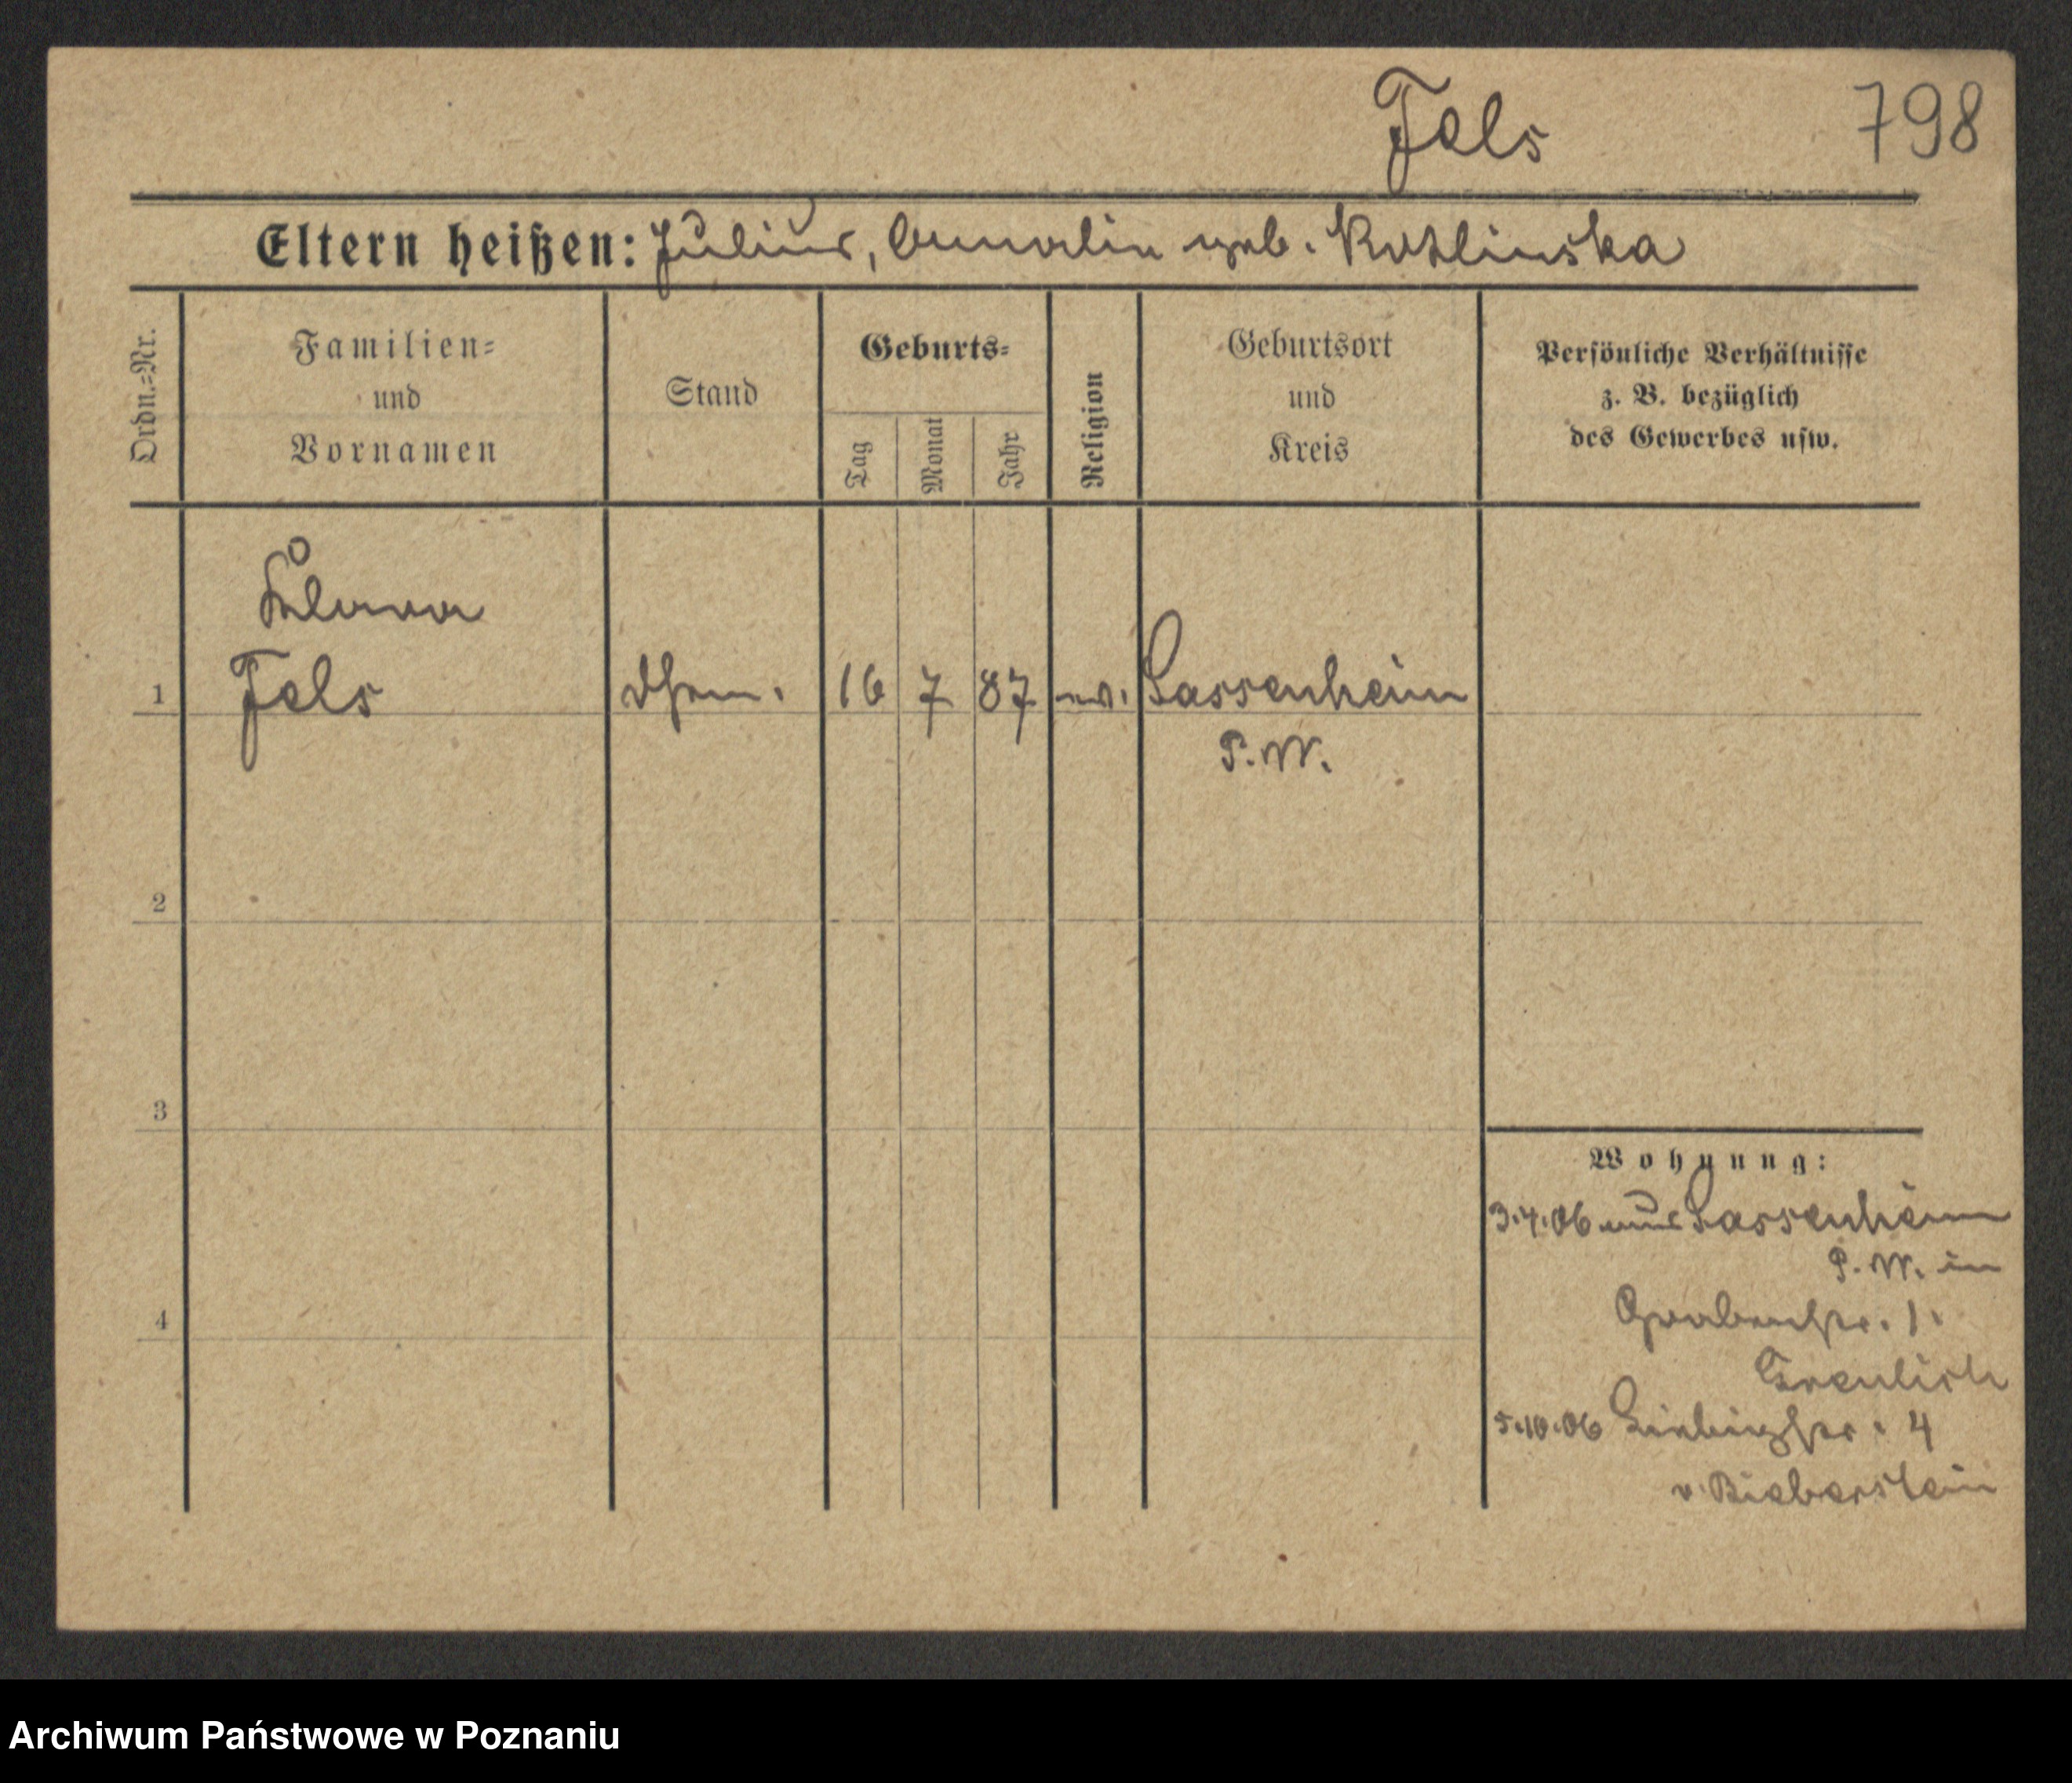 Fels 798
Eltern heißen: Julius, Amalie geb. Kotlinska
Ordn.=Nr.
Familien=
und
Vornamen
Stand
Geburts=
Tag
Monat
Jahr
Religion
Geburtsort
und
Kreis
Persönliche Verhältnisse
z. B. bezüglich
des Gewerbes usw.
Klara
1 Fels 16 7 87 ev. Sassenheim
P.W.
2
3
4
Wohnung:
3.4.06 aus Sassenheim
P.W. in
Grabenstr. 1.
Greulich
5.10.06 Liebigstr. 4
v. Bieberstein
Archiwum Państwowe w Poznaniu